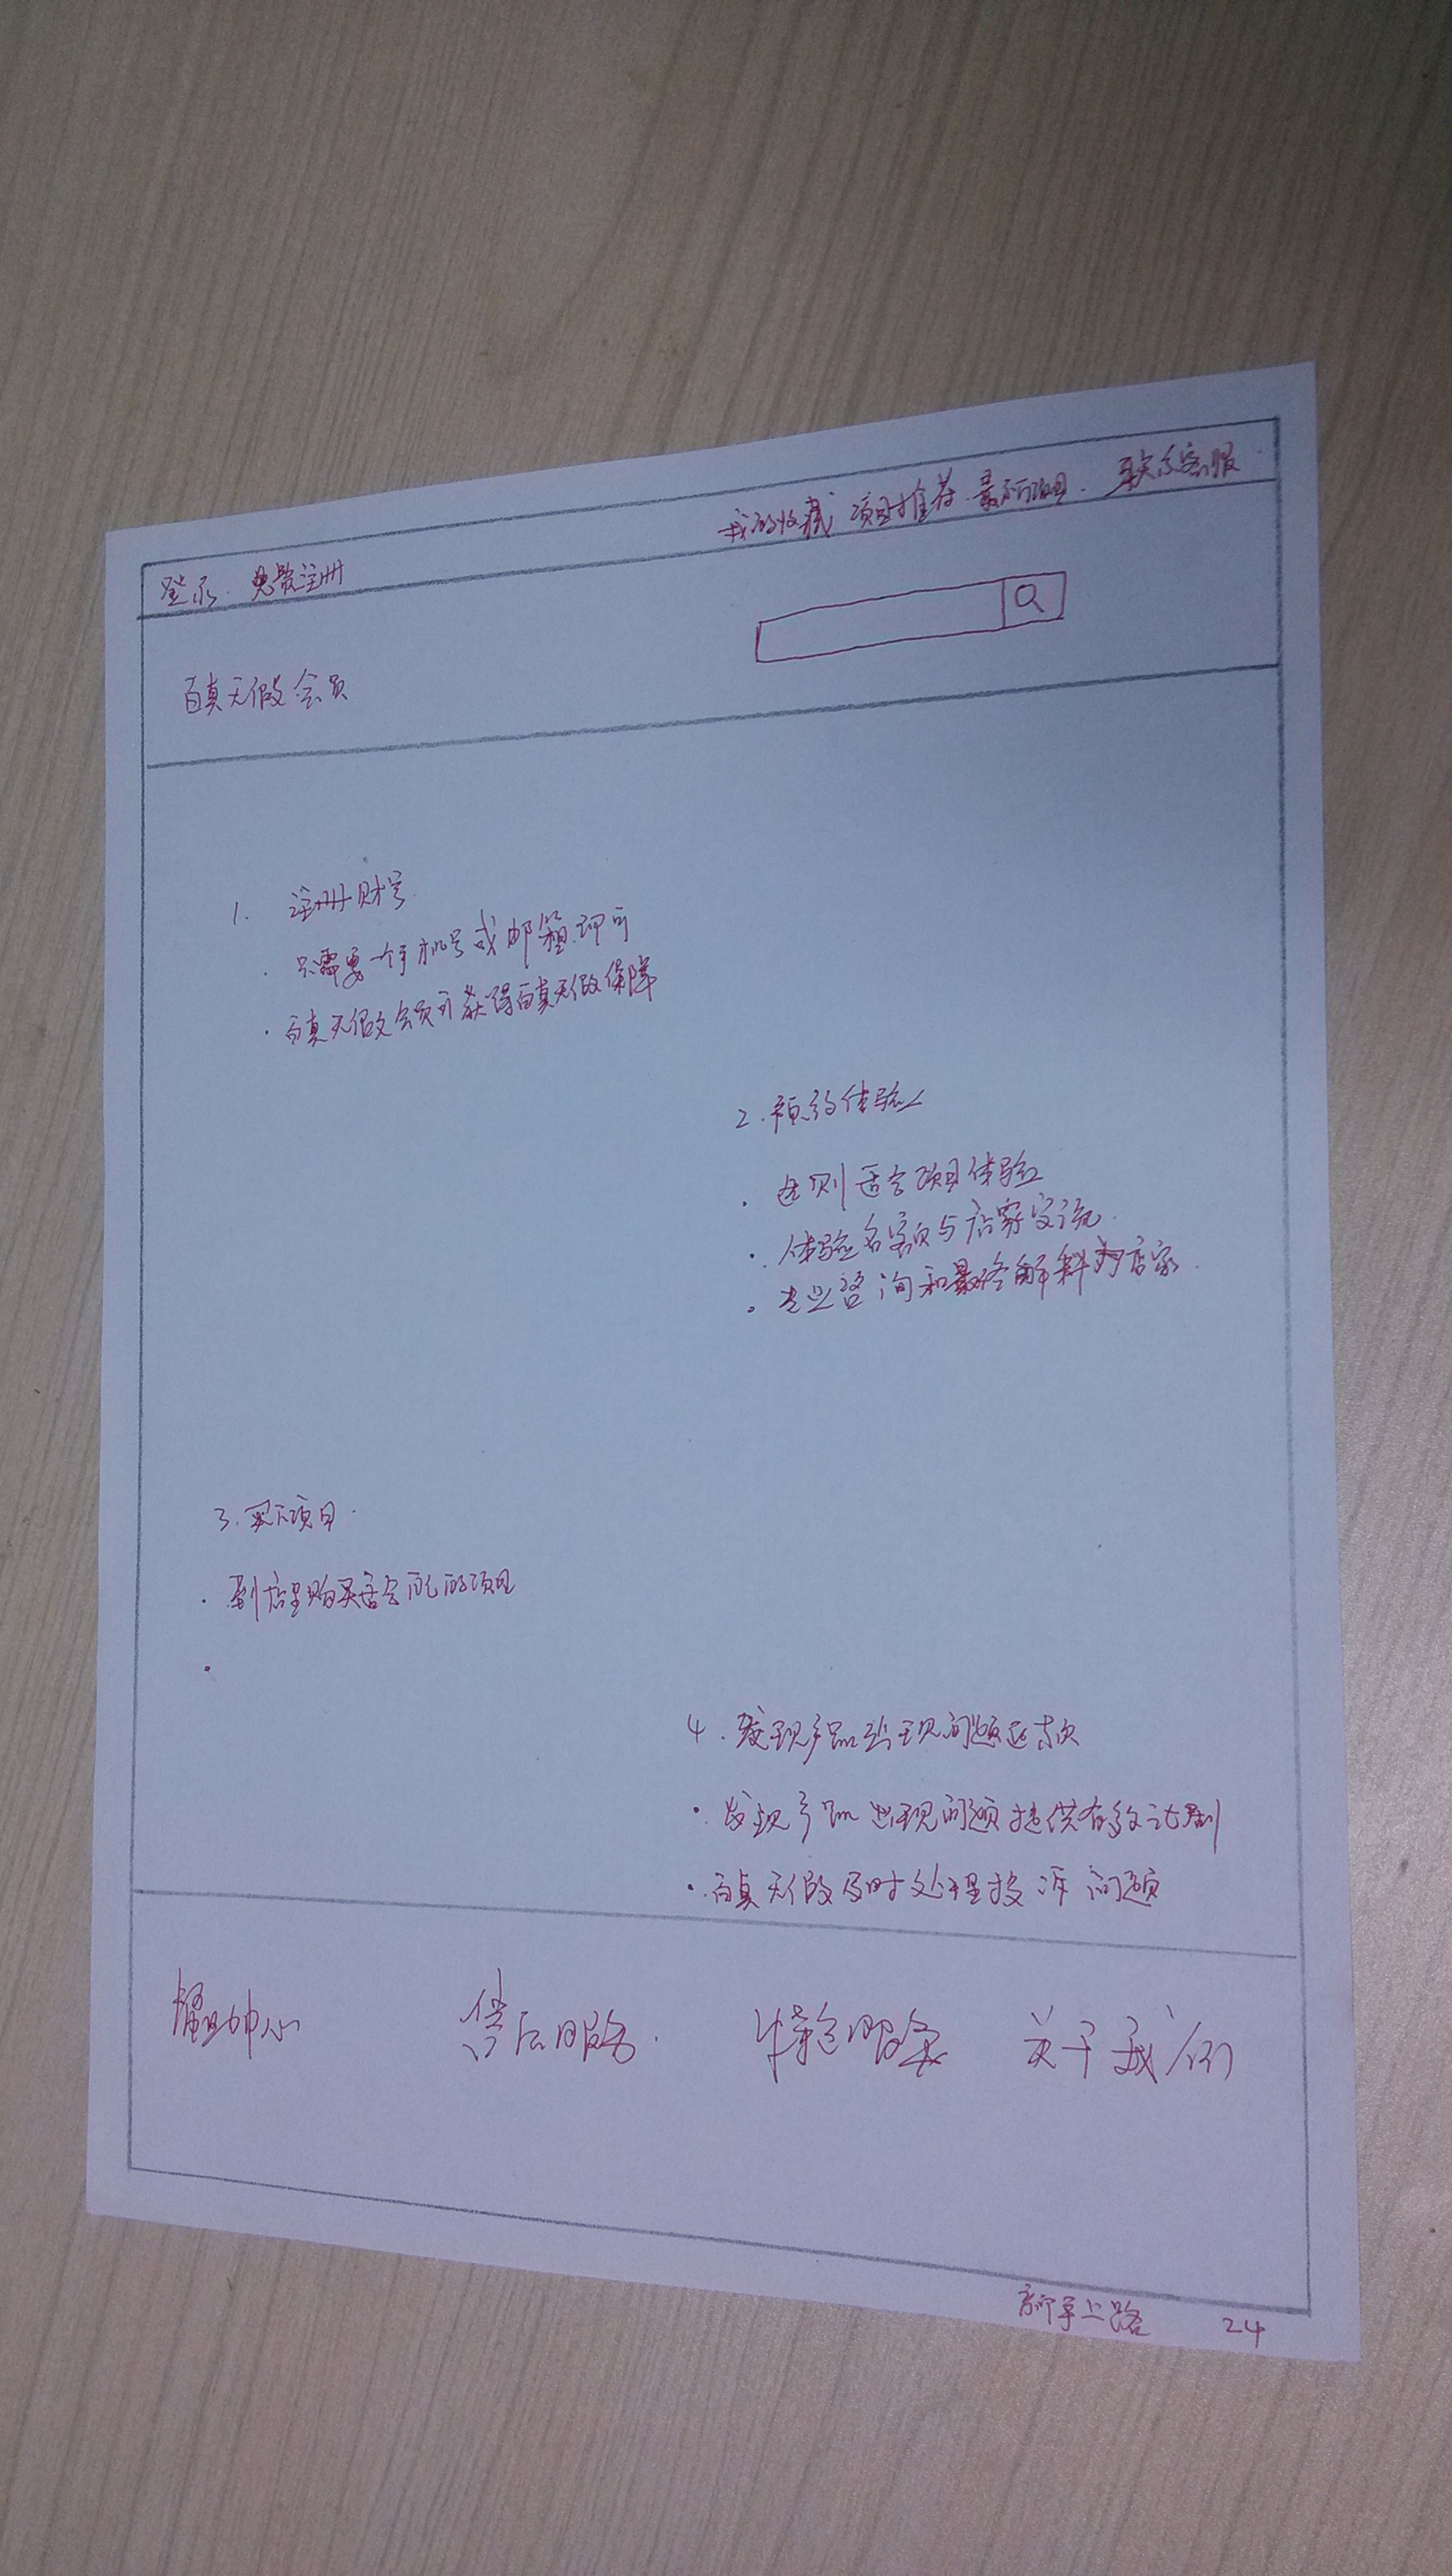 登录 免费注册 我的收藏 项目推荐 最新项目 联系客服
百真无假会员
1. 注册财号
· 只需要一个手机号或邮箱即可
· 百真无假会员可获得百真无假保障
2. 预约体验
· 选则适合项目体验
· 体验名额与店家交流
· 专业咨询和最终解释为店家
3. 买下项目
· 到店里购买适合自己的项目
·
4. 发现产品出现问题
· 发现产品出现问题提供有效计划
· 百真无假及时处理投诉问题
帮助中心 售后服务 特色服务 关于我们
新手上路 24